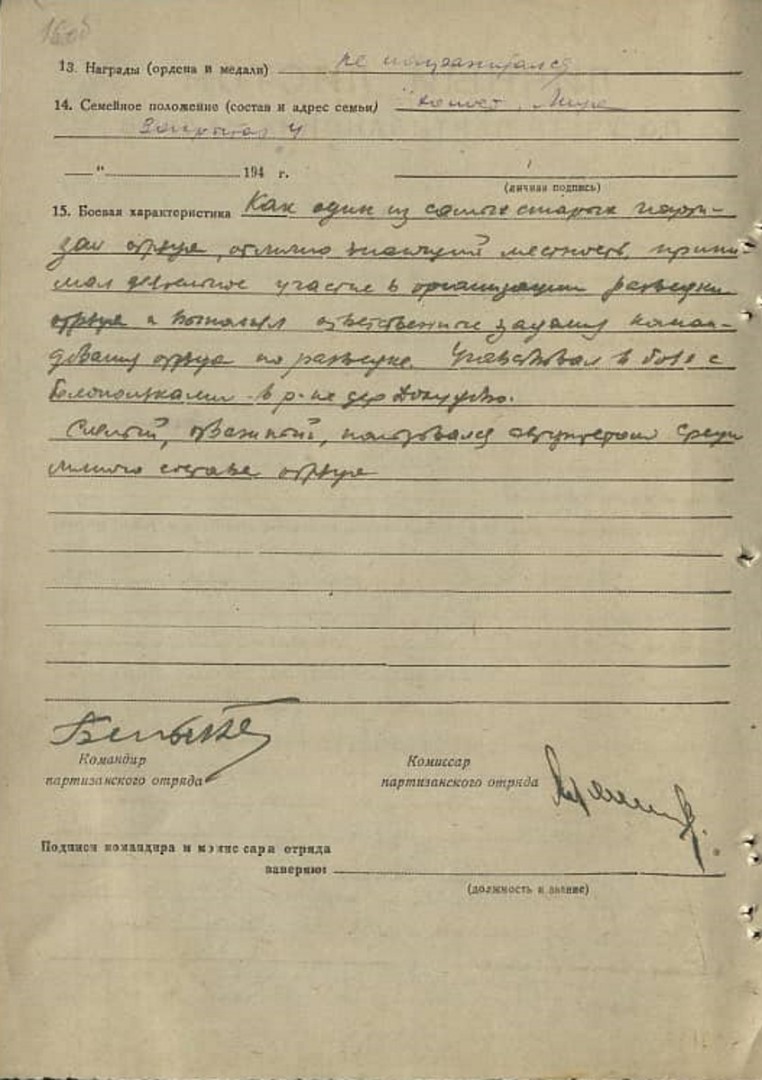 16об
13. Награды (ордена и медали) не награждался
14. Семейное положение (состав и адрес семьи)
"
194 г.
(личная подпись)
15. Боевая характеристика Как один из самых старых парти-
зан отряда, отлично знающий местность, прини-
мал деятельное участие в организации разведки
отряда и выполнял ответственные задания коман-
дования отряда по разведке. Участвовал в бое с
белополяками в р-не дер Докудово.
Смелый, отважный, пользовался авторитетом среди
личного состава отряда
Командир
партизанского отряда
Комиссар
партизанского отряда
Подписи командира и комиссара отряда
заверяю:
(должность и звание)